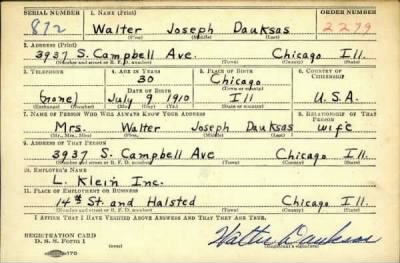 SERIAL NUMBER 1. NAME (Print) ORDER NUMBER
872 Walter Joseph Dauksas 2279
(First) (Middle) (Last)
2. ADDRESS (Print)
3937 S. Campbell Ave. Chicago Ill.
(Number and street or R. F. D. number) (Town) (County) (State)
3. TELEPHONE 4. AGE IN YEARS 5. PLACE OF BIRTH 6. COUNTRY OF CITIZENSHIP
30 Chicago
DATE OF BIRTH (Town or county)
(none) July 9 1910 Ill U.S.A.
(Exchange) (Number) (Mo.) (Day) (Yr.) (State or country)
7. NAME OF PERSON WHO WILL ALWAYS KNOW YOUR ADDRESS 8. RELATIONSHIP OF THAT PERSON
Mrs. Walter Joseph Dauksas wife
(Mr., Mrs., Miss) (First) (Middle) (Last)
9. ADDRESS OF THAT PERSON
3937 S. Campbell Ave Chicago Ill.
(Number and street or R. F. D. number) (Town) (County) (State)
10. EMPLOYER'S NAME
L. Klein Inc.
11. PLACE OF EMPLOYMENT OR BUSINESS
14th St. and Halsted Chicago Ill.
(Number and street or R. F. D. number) (Town) (County) (State)
I AFFIRM THAT I HAVE VERIFIED ABOVE ANSWERS AND THAT THEY ARE TRUE.
REGISTRATION CARD
D. S. S. Form 1 (over) Walter Dauksas